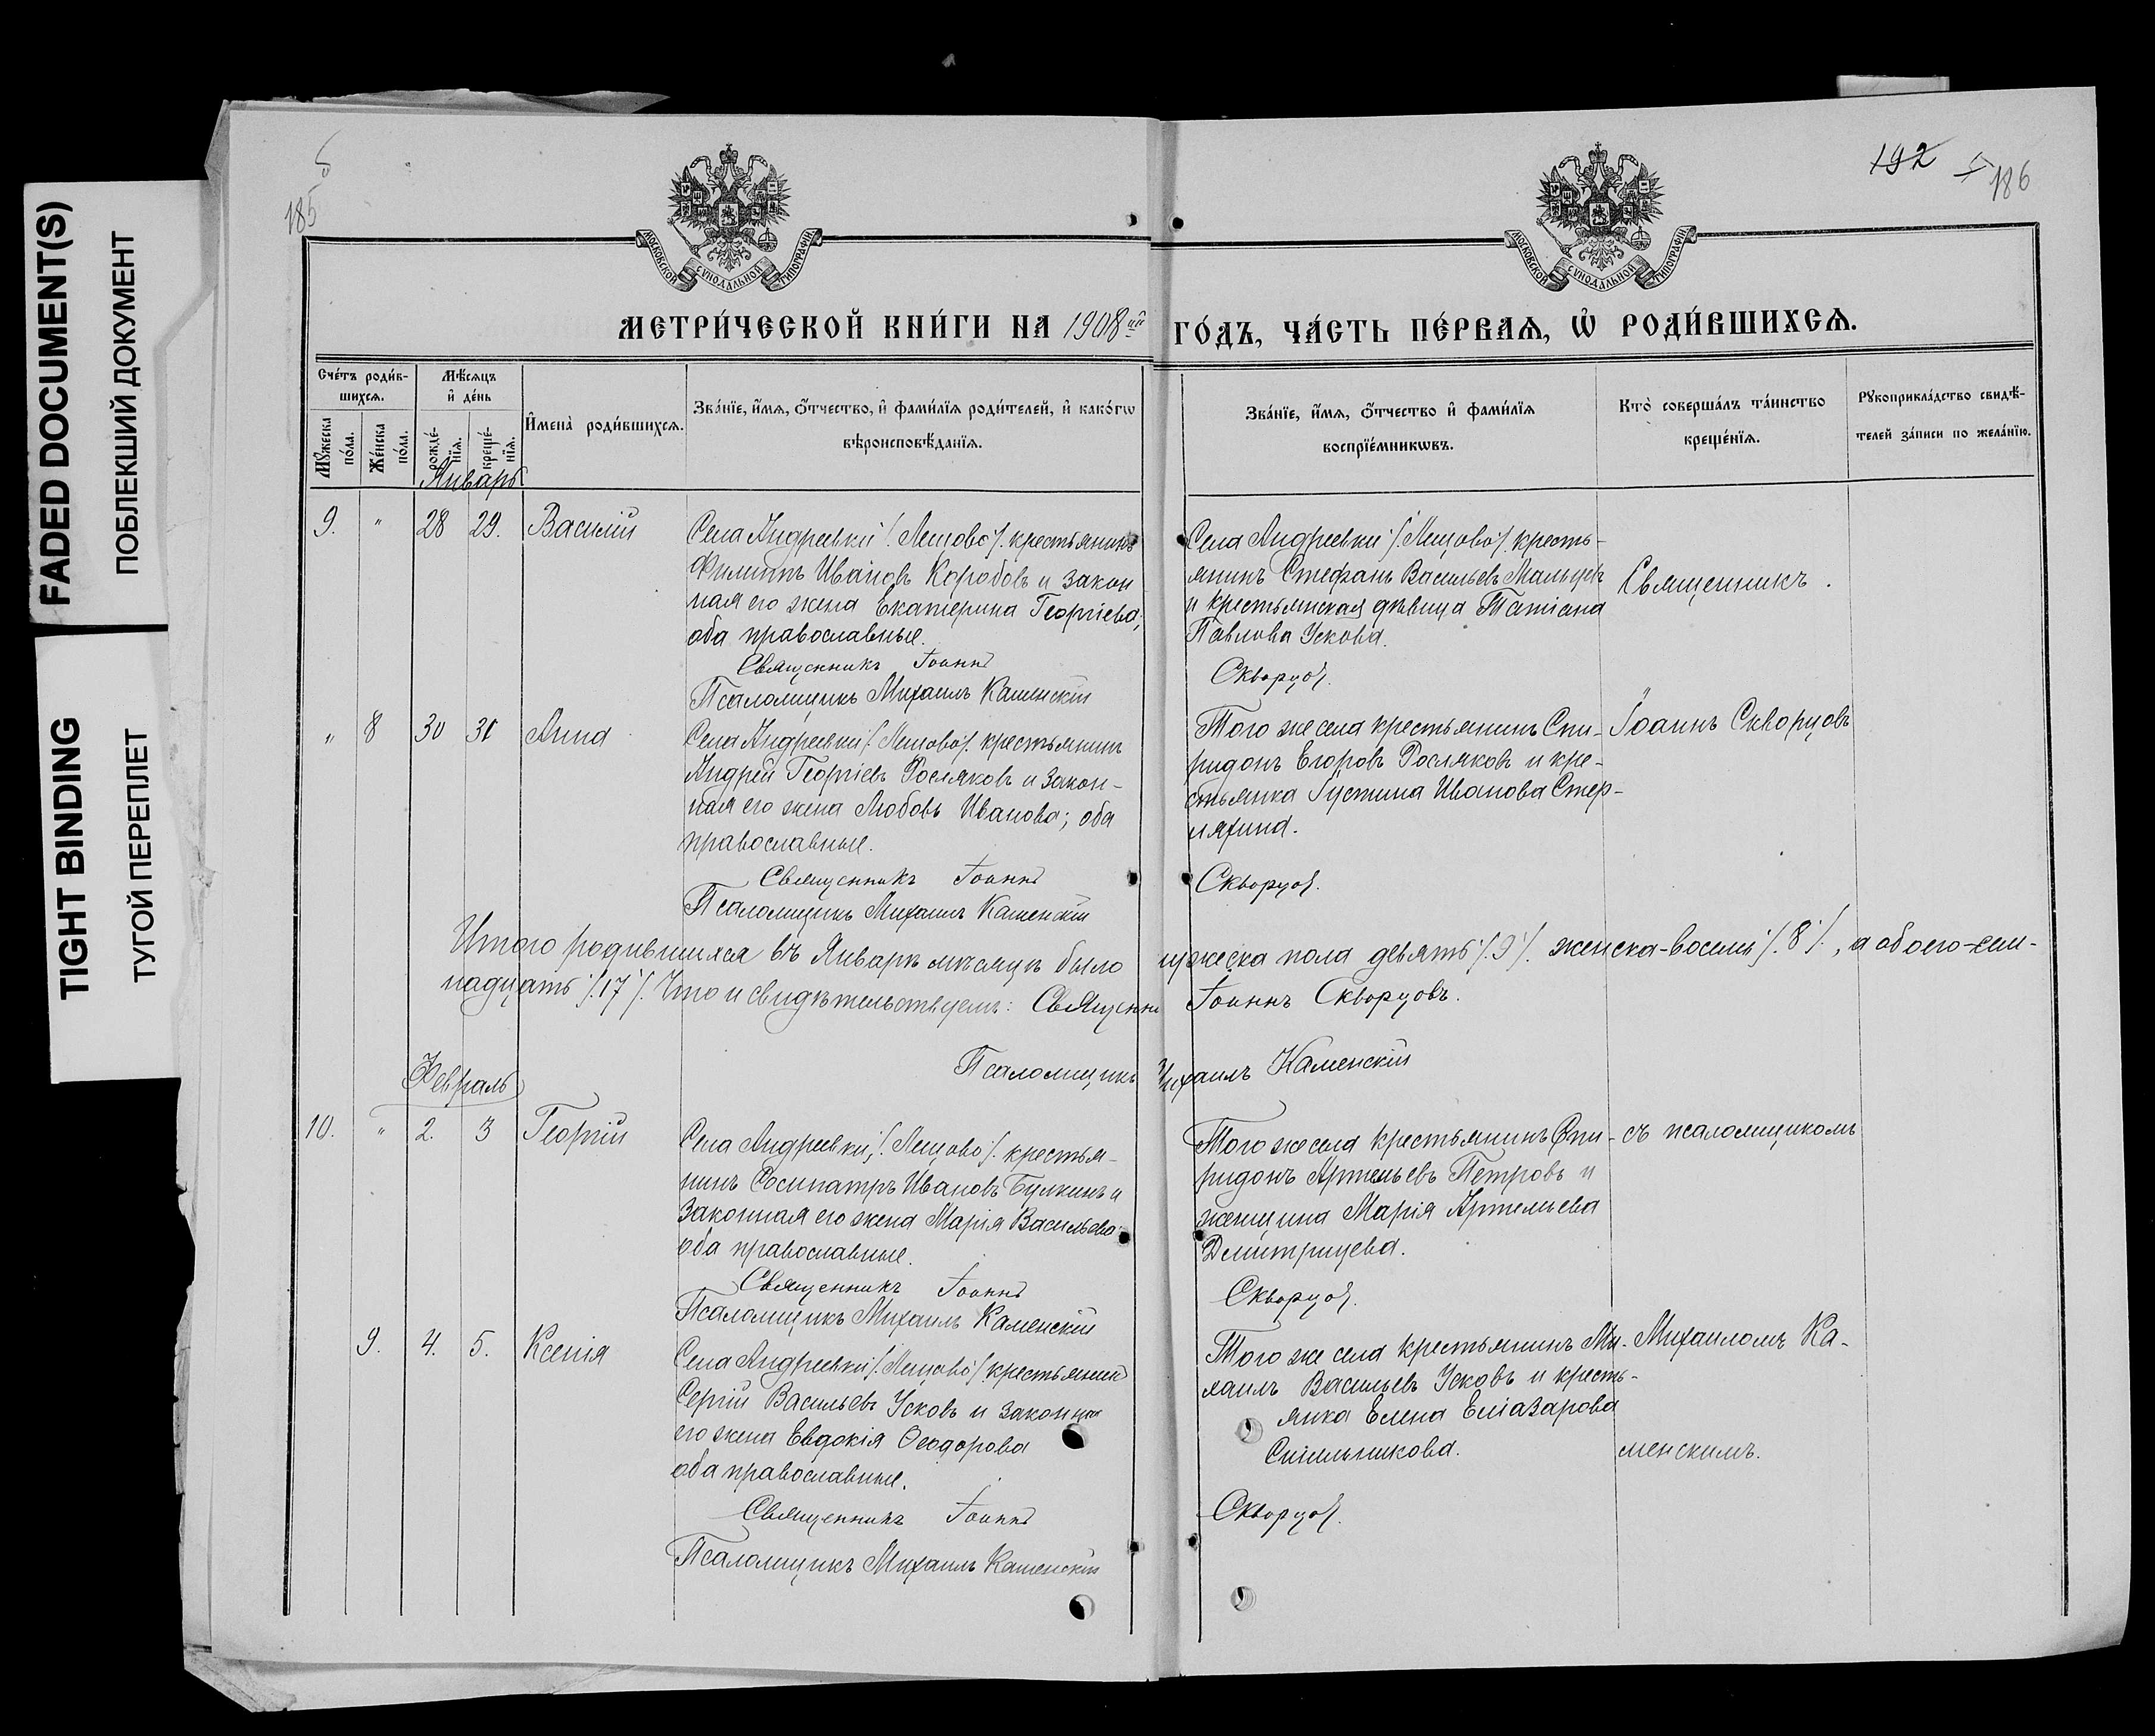 FADED DOCUMENT(S)
ПОБЛЕКШИЙ ДОКУМЕНТ
TIGHT BINDING
ТУГОЙ ПЕРЕПЛЕТ
5
185
192
186
МОСКОВСКОЙ СѴНОДАЛЬНОЙ ТИПОГРАФІИ
МОСКОВСКОЙ СѴНОДАЛЬНОЙ ТИПОГРАФІИ
МЕТРИ́ЧЕСКОЙ КНИ́ГИ НА 1908ой ГО́ДЪ, ЧА́СТЬ ПЕ́РВАѦ, Ѽ РОДИ́ВШИХСѦ.
Сче́тъ роди́в-
шихсѧ.
Мꙋ́жеска
по́ла.
Же́нска
по́ла.
Мѣ́сѧцъ
и҆ де́нь
рожде́-
нїѧ.
креще́-
нїѧ.
И҆мена̀ роди́вшихсѧ.
Зва́нїе, и҆́мѧ, ѻ҆́тчество, и҆ фами́лїѧ роди́телей, и҆ како́гѡ
вѣроисповѣ́данїѧ.
Зва́нїе, и҆́мѧ, ѻ҆́тчество и҆ фами́лїѧ
воспрїе́мникѡвъ.
Кто̀ соверша́лъ та́инство
креще́нїѧ.
Рꙋкоприкла́дство свидѣ́-
телей за́писи по жела́нїю.
Январь
9. " 28 29. Василій
Села Андреевки /. Лещово /. крестьянинъ
Филиппъ Ивановъ Коробовъ и закон
ная его жена Екатерина Георгіева;
оба православные.
Священникъ Іоаннъ
Псаломщикъ Михаилъ Каменскій
Села Андреевки /. Лещово /. кресть-
янинъ Стефанъ Васильевъ Мальцевъ
и крестьянская дѣвица Татіана
Павлова Ускова.
Скворцов.
Священникъ.
" 8 30 31 Анна
Села Андреевки /. Лещово /. крестьянинъ
Андрей Георгіевъ Росляковъ и закон-
ная его жена Любовь Иванова; оба
православные.
Священникъ Іоаннъ
Псаломщикъ Михаилъ Каменскій
Того же села крестьянинъ Спи-
ридонъ Егоровъ Росляковъ и кре-
стьянка Іустина Иванова Стер-
ляхина.
Скворцов.
Іоаннъ Скворцовъ
Итого родившихся въ Январѣ мѣсяцѣ было мужеска пола девять /. 9 /. женска-восемь /. 8 /., а обоего-сем-
надцать /. 17 /. Что и свидѣтельствуемъ: Священни Іоаннъ Скворцовъ.
Псаломщикъ Михаилъ Каменскій
Февраль
10. " 2. 3 Георгій
Села Андреевки, /. Лещово /. крестья-
нинъ Сосипатръ Ивановъ Булкинъ и
законная его жена Марія Васильева
оба православные.
Священникъ Іоаннъ
Псаломщикъ Михаилъ Каменскій
Того же села крестьянинъ Спи-
ридонъ Артемьевъ Петровъ и
женщина Марія Артемьева
Дмитрцева.
Скворцов.
съ псаломщикомъ
9. 4. 5. Ксенія
Села Андреевки /. Лещово /. крестьянинъ
Сергій Васильевъ Усковъ и законная
его жена Евдокія Ѳеодорова
оба православные.
Священникъ Іоаннъ
Псаломщикъ Михаилъ Каменскій
Того же села крестьянинъ Ми-
хаилъ Васильевъ Усковъ и кресть-
янка Елена Еліазарова
Синельникова.
Скворцов.
Михаиломъ Ка-
менскимъ.